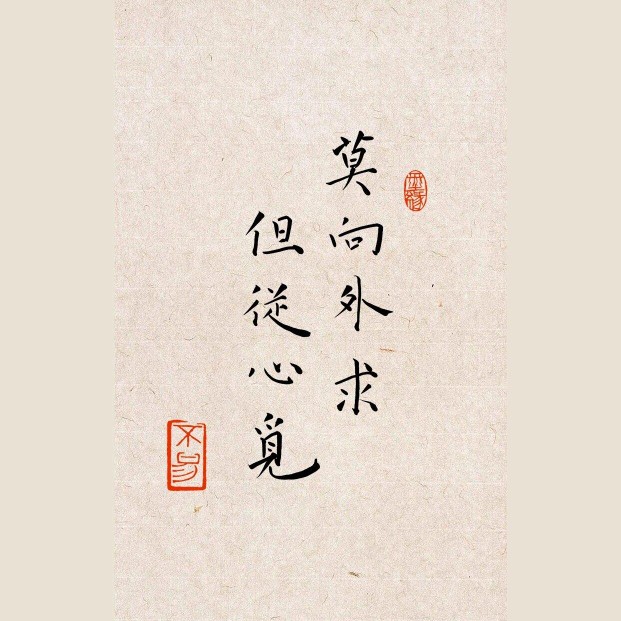 莫向外求
但從心覓
不易